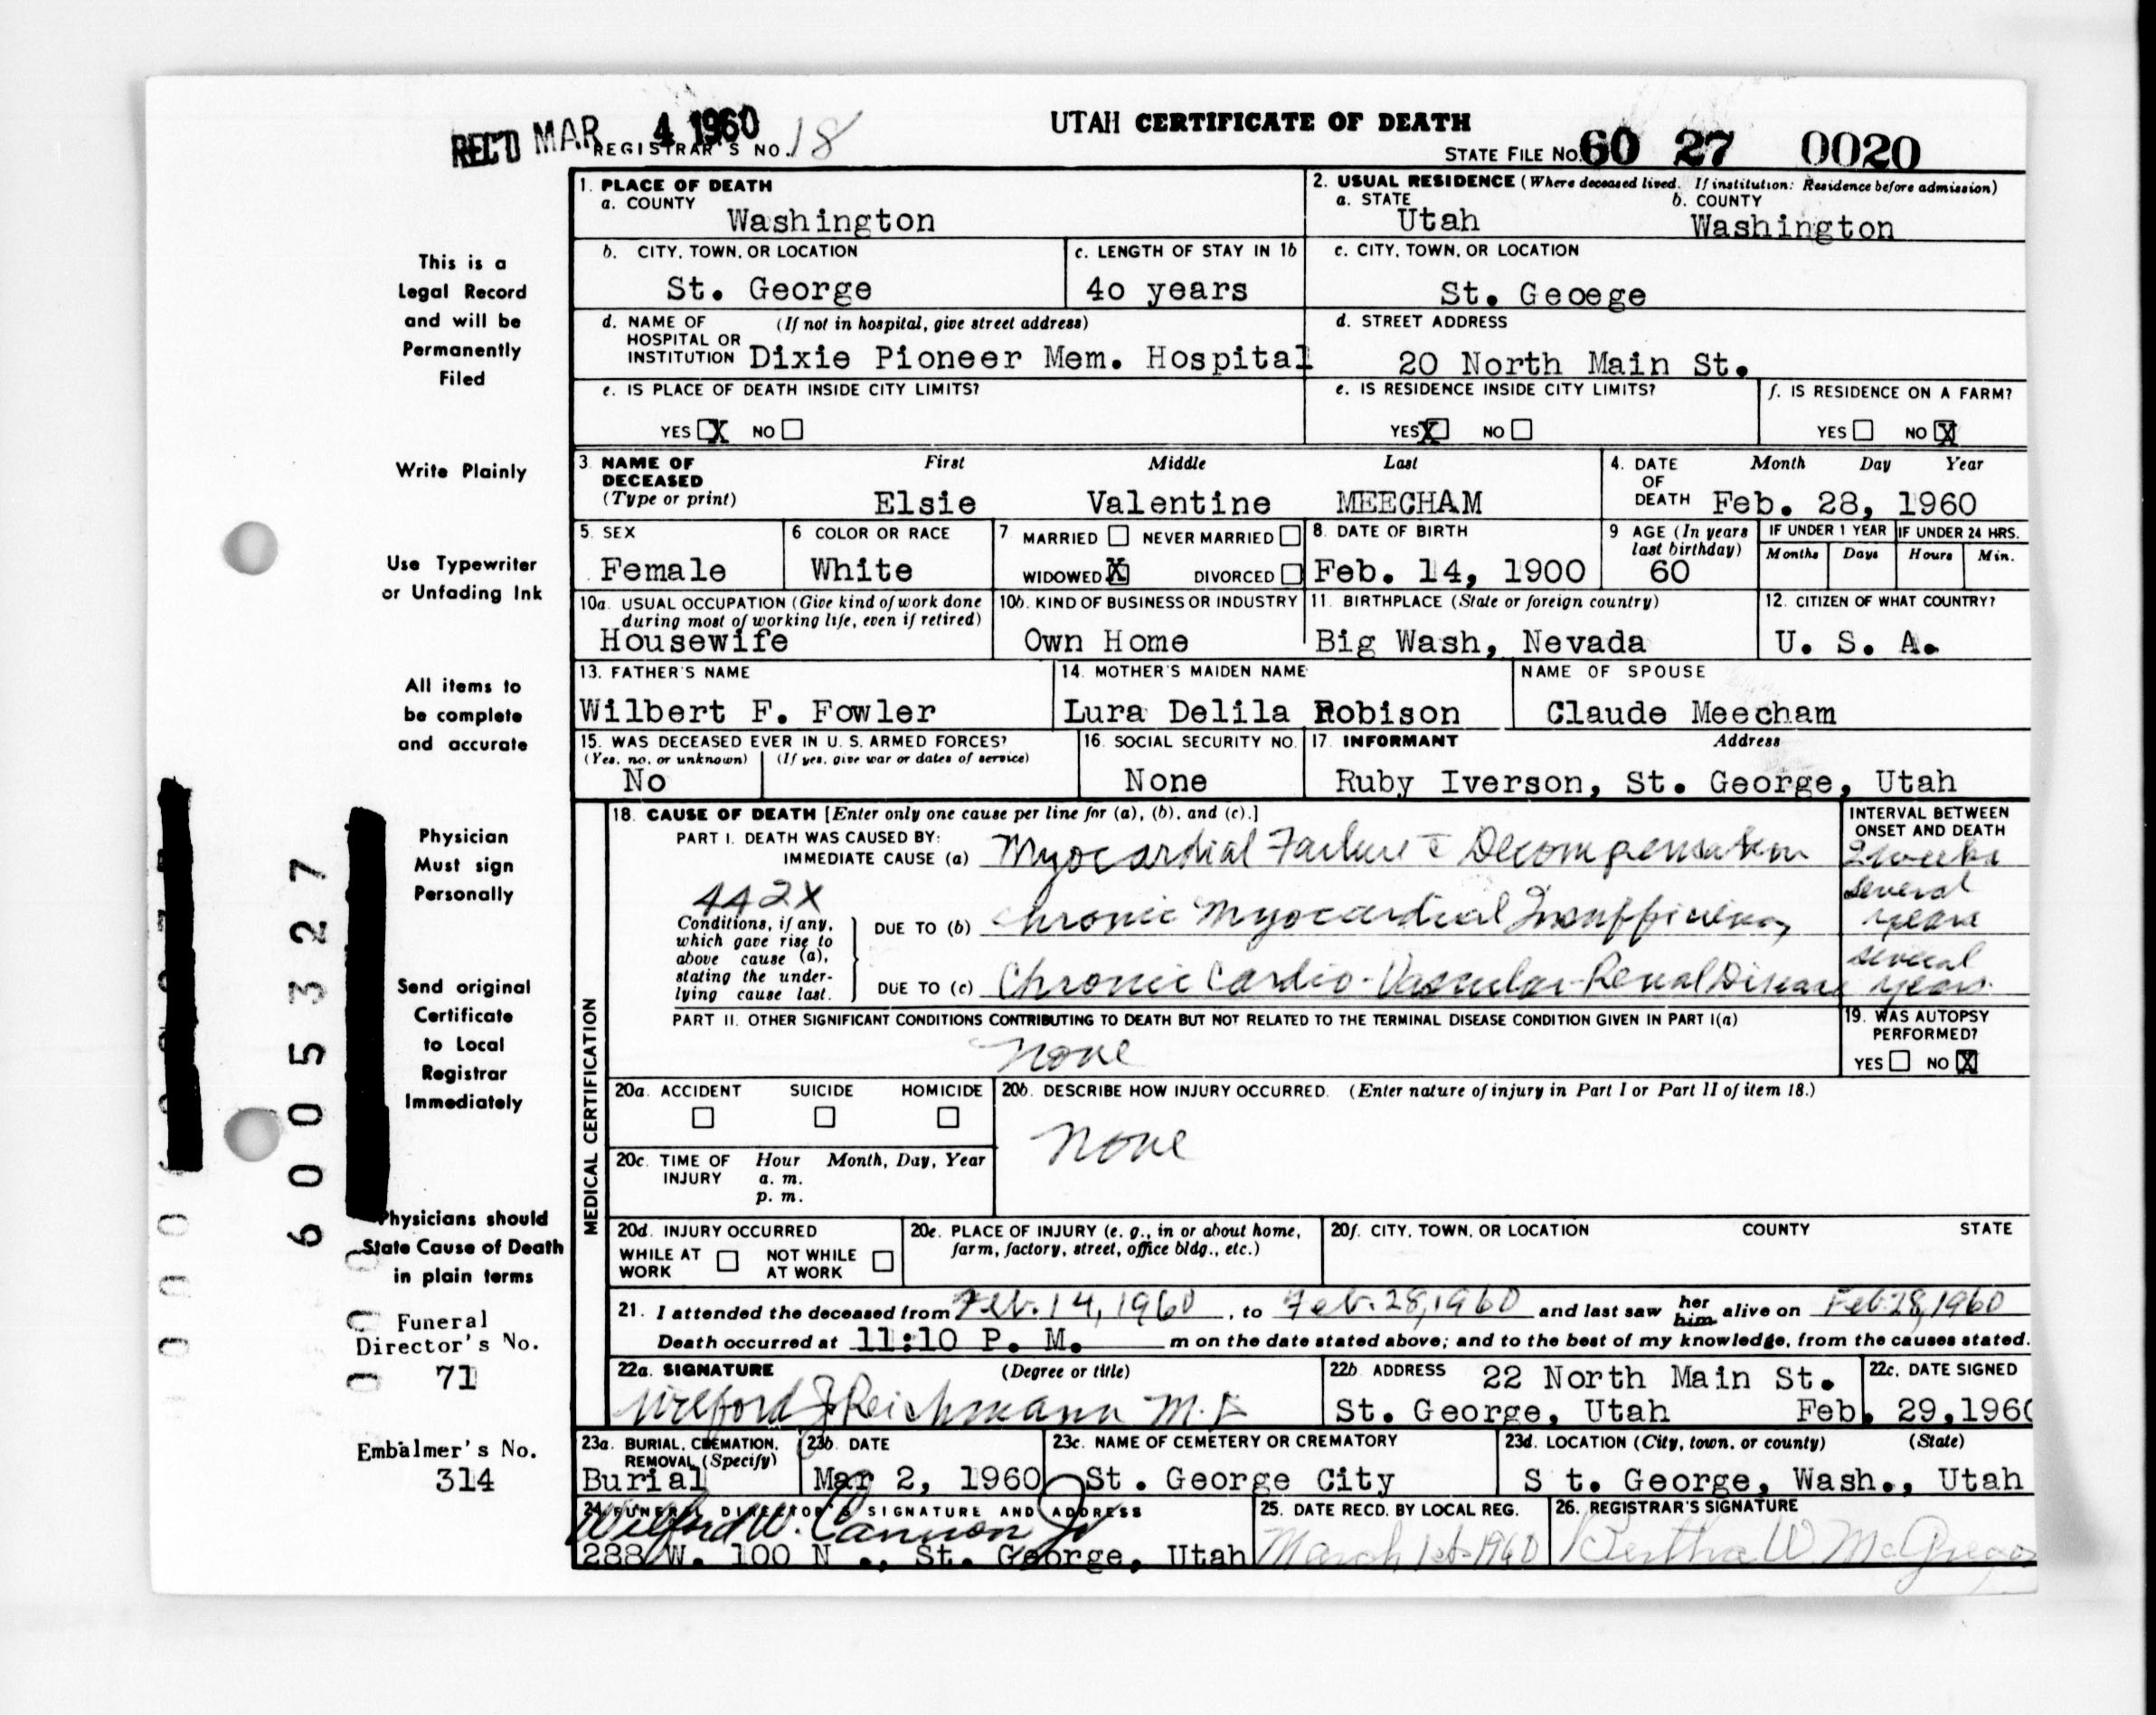 REC'D MAR 4 1960
REGISTRAR'S NO. 18
UTAH CERTIFICATE OF DEATH
STATE FILE NO. 60 27 0020
1. PLACE OF DEATH
a. COUNTY
Washington
2. USUAL RESIDENCE (Where deceased lived. If institution: Residence before admission)
a. STATE
Utah
b. COUNTY
Washington
b. CITY, TOWN, OR LOCATION
St. George
c. LENGTH OF STAY IN 1b
4o years
c. CITY, TOWN, OR LOCATION
St. Geoege
d. NAME OF HOSPITAL OR INSTITUTION
(If not in hospital, give street address)
Dixie Pioneer Mem. Hospital
d. STREET ADDRESS
20 North Main St.
e. IS PLACE OF DEATH INSIDE CITY LIMITS?
YES X NO
e. IS RESIDENCE INSIDE CITY LIMITS?
YES X NO
f. IS RESIDENCE ON A FARM?
YES NO X
3. NAME OF DECEASED
(Type or print)
First Middle Last
Elsie Valentine MEECHAM
4. DATE OF DEATH
Month Day Year
Feb. 28, 1960
5. SEX
Female
6 COLOR OR RACE
White
7 MARRIED NEVER MARRIED
WIDOWED X DIVORCED
8. DATE OF BIRTH
Feb. 14, 1900
9 AGE (In years last birthday)
60
IF UNDER 1 YEAR
Months Days
IF UNDER 24 HRS.
Hours Min.
10a. USUAL OCCUPATION (Give kind of work done during most of working life, even if retired)
Housewife
10b. KIND OF BUSINESS OR INDUSTRY
Own Home
11. BIRTHPLACE (State or foreign country)
Big Wash, Nevada
12. CITIZEN OF WHAT COUNTRY?
U. S. A.
13. FATHER'S NAME
Wilbert F. Fowler
14. MOTHER'S MAIDEN NAME
Lura Delila Robison
NAME OF SPOUSE
Claude Meecham
15. WAS DECEASED EVER IN U. S. ARMED FORCES?
(Yes, no, or unknown) (If yes, give war or dates of service)
No
16. SOCIAL SECURITY NO.
None
17. INFORMANT Address
Ruby Iverson, St. George, Utah
MEDICAL CERTIFICATION
18. CAUSE OF DEATH [Enter only one cause per line for (a), (b), and (c).]
INTERVAL BETWEEN ONSET AND DEATH
PART I. DEATH WAS CAUSED BY:
IMMEDIATE CAUSE (a) Myocardial Failure c̄ Decompensation
2 weeks
442X
Conditions, if any, which gave rise to above cause (a), stating the underlying cause last.
DUE TO (b) Chronic Myocardial Insufficiency
several years
DUE TO (c) Chronic Cardio-Vascular-Renal Disease
several years
PART II. OTHER SIGNIFICANT CONDITIONS CONTRIBUTING TO DEATH BUT NOT RELATED TO THE TERMINAL DISEASE CONDITION GIVEN IN PART I(a)
none
19. WAS AUTOPSY PERFORMED?
YES NO X
20a. ACCIDENT SUICIDE HOMICIDE
20b. DESCRIBE HOW INJURY OCCURRED. (Enter nature of injury in Part I or Part II of item 18.)
none
20c. TIME OF INJURY
Hour Month, Day, Year
a. m.
p. m.
20d. INJURY OCCURRED
WHILE AT WORK NOT WHILE AT WORK
20e. PLACE OF INJURY (e. g., in or about home, farm, factory, street, office bldg., etc.)
20f. CITY, TOWN, OR LOCATION COUNTY STATE
21. I attended the deceased from Feb. 14, 1960, to Feb. 28, 1960 and last saw her him alive on Feb 28, 1960
Death occurred at 11:10 P. M. m on the date stated above; and to the best of my knowledge, from the causes stated.
22a. SIGNATURE (Degree or title)
Wilford J Reichmann M.D
22b ADDRESS 22 North Main St.
St. George, Utah
22c. DATE SIGNED
Feb. 29,1960
23a. BURIAL, CREMATION, REMOVAL (Specify)
Burial
23b. DATE
Mar 2, 1960
23c. NAME OF CEMETERY OR CREMATORY
St. George City
23d. LOCATION (City, town, or county) (State)
S t. George, Wash., Utah
24. FUNERAL DIRECTOR'S SIGNATURE AND ADDRESS
Wilford W. Cannon Jr
288 W. 100 N ., St. George, Utah
25. DATE RECD. BY LOCAL REG.
March 1st 1960
26. REGISTRAR'S SIGNATURE
Bertha W McGregor
This is a
Legal Record
and will be
Permanently
Filed
Write Plainly
Use Typewriter
or Unfading Ink
All items to
be complete
and accurate
Physician
Must sign
Personally
Send original
Certificate
to Local
Registrar
Immediately
Physicians should
State Cause of Death
in plain terms
Funeral
Director's No.
71
Embalmer's No.
314
6005327